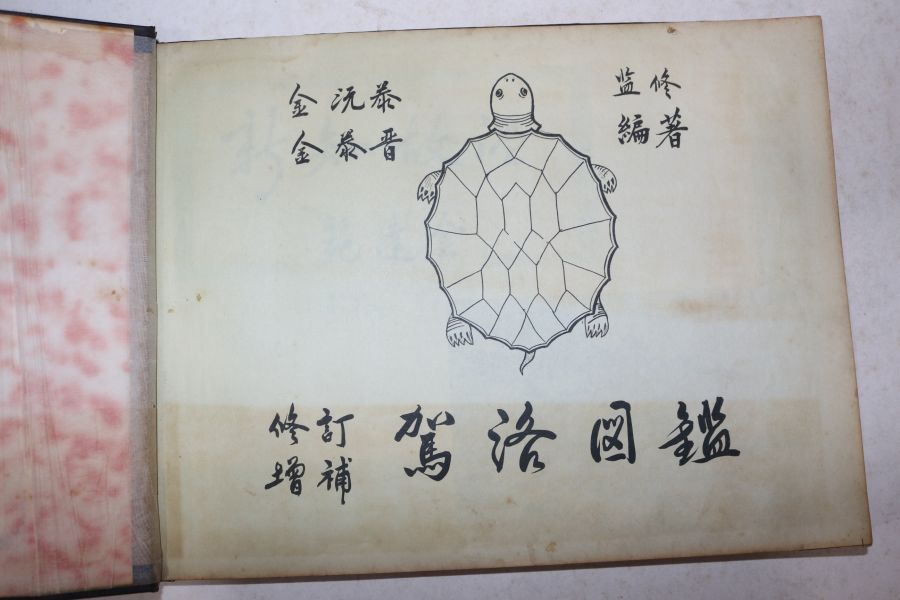 金沅泰 监修
金泰晋 編著
修訂
增補
駕洛図鑑